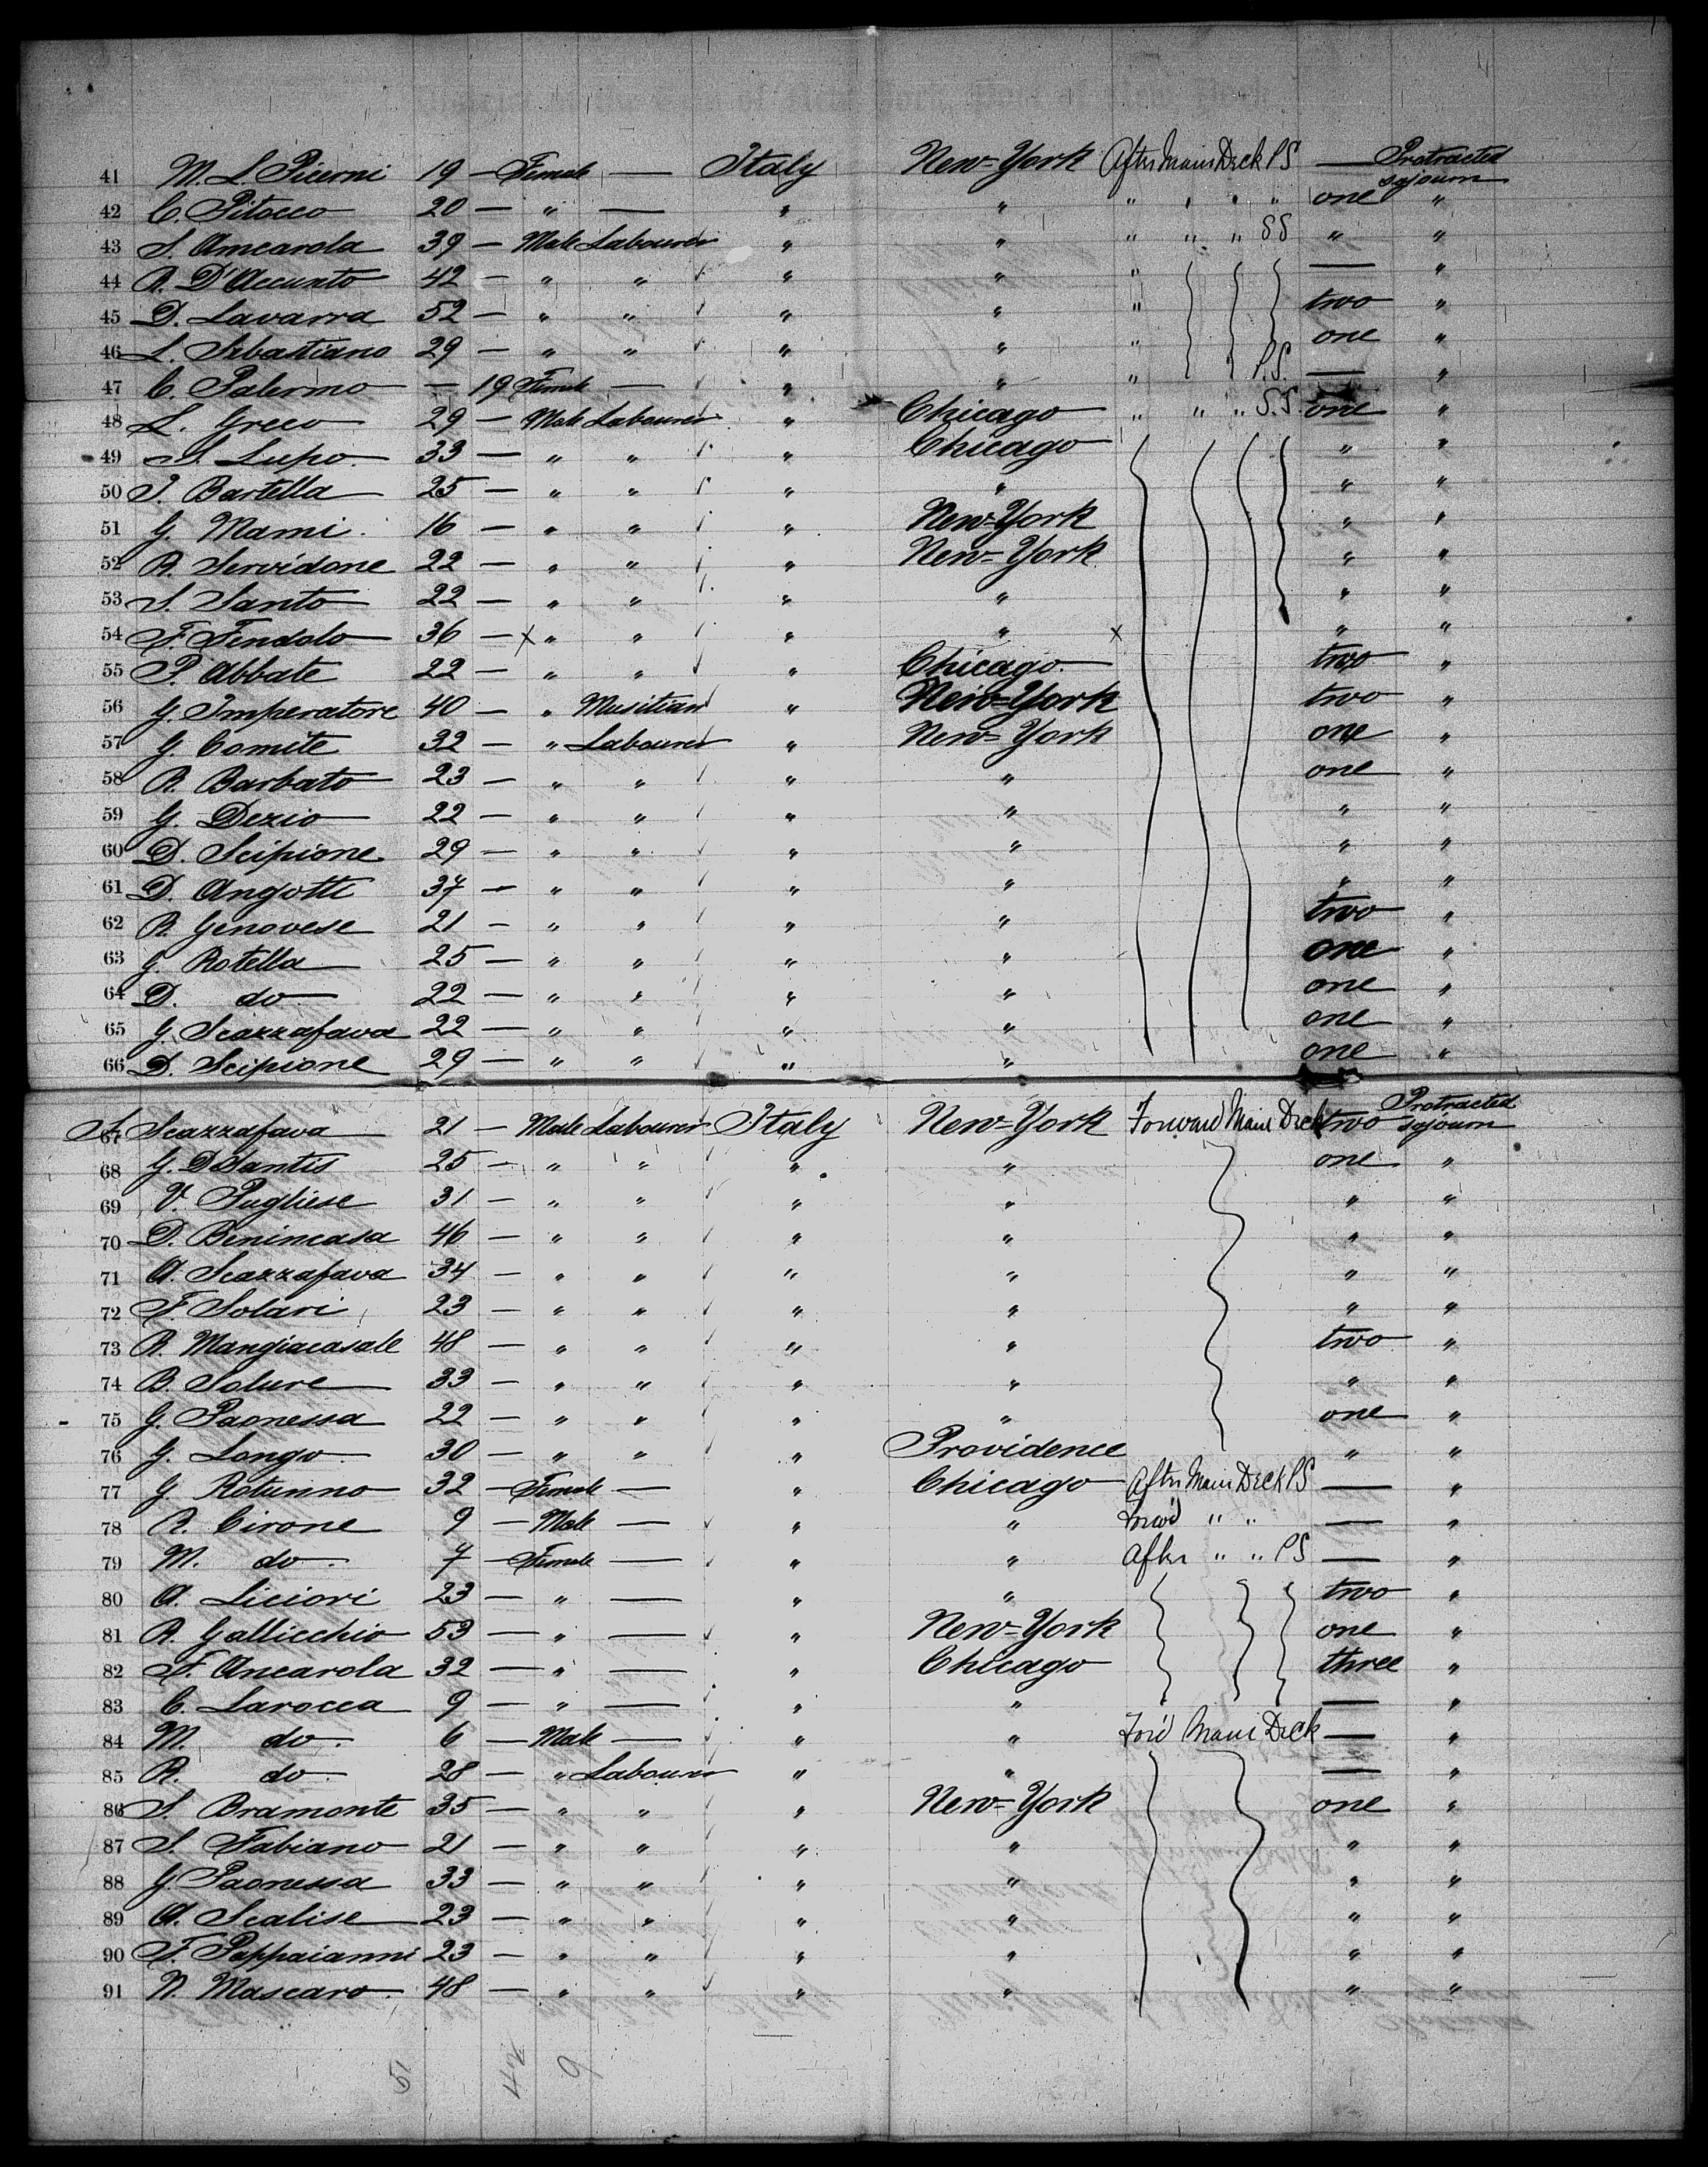 41 M. L. Picerni 19 — Female — Italy New-York After Main Deck PS — Protracted sojourn
42 C. Pitocco 20 — " — " " " " " " one "
43 S. Ancarola 39 — Male Labourer " " " " " SS " "
44 R. D'Accunto 42 — " " " " " — "
45 D. Lavarra 52 — " " " " " two "
46 L. Sebastiano 29 — " " " " " one "
47 C. Palermo — 19 Female — " " " P.S. — "
48 L. Greco 29 — Male Labourer " Chicago " " " S.S. one "
49 S. Lupo 33 — " " " Chicago " "
50 J. Bartella 25 — " " " " " "
51 G. Mami 16 — " " " New-York " "
52 R. Servidone 22 — " " " New-York " "
53 S. Santo 22 — " " " " " "
54 F. Fendolo 36 — x " " " " x " "
55 P. Abbate 22 — " " " Chicago two "
56 G. Imperatore 40 — " Musitian " New-York two "
57 G. Comite 32 — " Labourer " New-York one "
58 R. Barbato 23 — " " " " one "
59 G. Dezio 22 — " " " " " "
60 D. Scipione 29 — " " " " " "
61 D. Angotti 37 — " " " " " "
62 R. Genovese 21 — " " " " two "
63 G. Rotella 25 — " " " " one "
64 D. do 22 — " " " " one "
65 G. Scazzafava 22 — " " " " one "
66 D. Scipione 29 — " " " " one "
67 Scazzafava 21 — Male Labourer Italy New-York Forward Main Deck two Protracted sojourn
68 G. DSantis 25 — " " " " one "
69 V. Pugliese 31 — " " " " " "
70 D. Benincasa 46 — " " " " " "
71 A. Scazzafava 34 — " " " " " "
72 F. Solari 23 — " " " " " "
73 R. Mangiacasale 48 — " " " " two "
74 B. Solure 33 — " " " " " "
75 G. Paonessa 22 — " " " " one "
76 G. Longo 30 — " " " Providence " "
77 G. Rotunno 32 — Female — " Chicago After Main Deck PS — "
78 R. Cirone 9 — Male — " " Forw'd " " — "
79 M. do. 7 — Female — " " After " " PS — "
80 A. Liciori 23 — " — " " two "
81 R. Gallicchio 53 — " — " New-York one "
82 F. Ancarola 32 — " — " Chicago three "
83 C. Larocca 9 — " — " " — "
84 M. do. 6 — Male — " " For'd Main Deck — "
85 R. do 28 — " Labourer " " — "
86 S. Bramonte 35 — " " " New-York one "
87 S. Fabiano 21 — " " " " " "
88 G. Paonessa 33 — " " " " " "
89 A. Scalise 23 — " " " " " "
90 F. Pappaianni 23 — " " " " " "
91 N. Mascaro 48 — " " " " " "